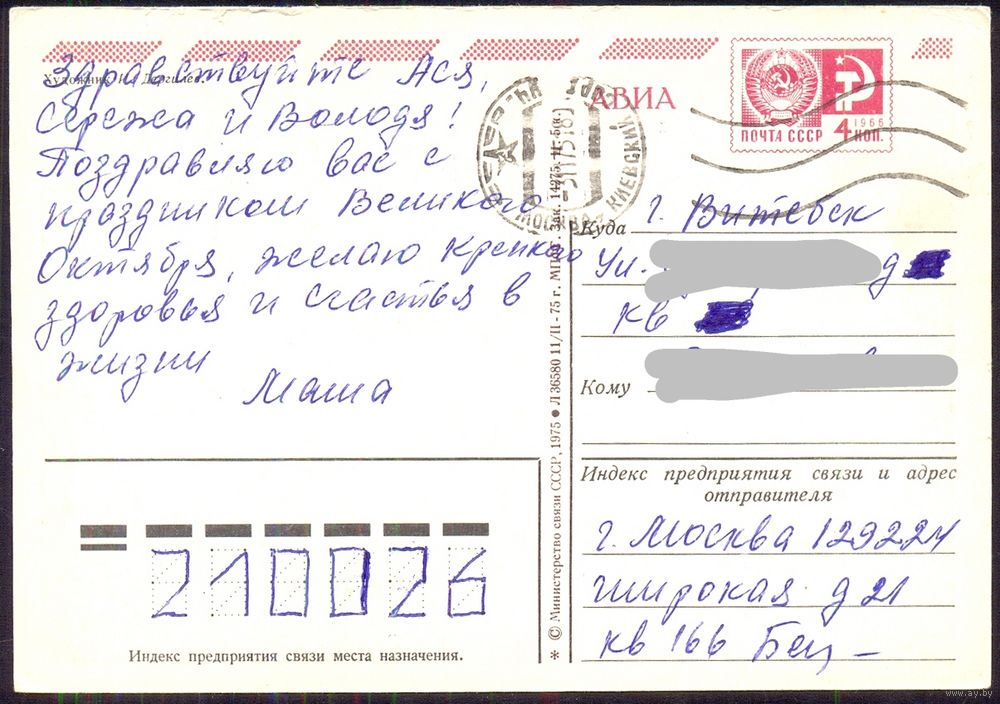 Художник
Здравствуйте Ася,
Сережа и Володя!
Поздравляю вас с
праздником Великого
Октября, желаю крепкого
здоровья и счастья в
жизни
Маша
АВИА
ПОЧТА СССР
1966
4 КОП.
МОСКВА
КИЕВСКИЙ
Куда г. Витебск
Ул. д
кв
Кому
Индекс предприятия связи и адрес
отправителя
г. Москва 129224
Широкая д 21
кв 166 Бец
© Министерство связи СССР, 1975 ● Л 36580 11/II-75 г. Зак.
210026
Индекс предприятия связи места назначения.
www.ay.by